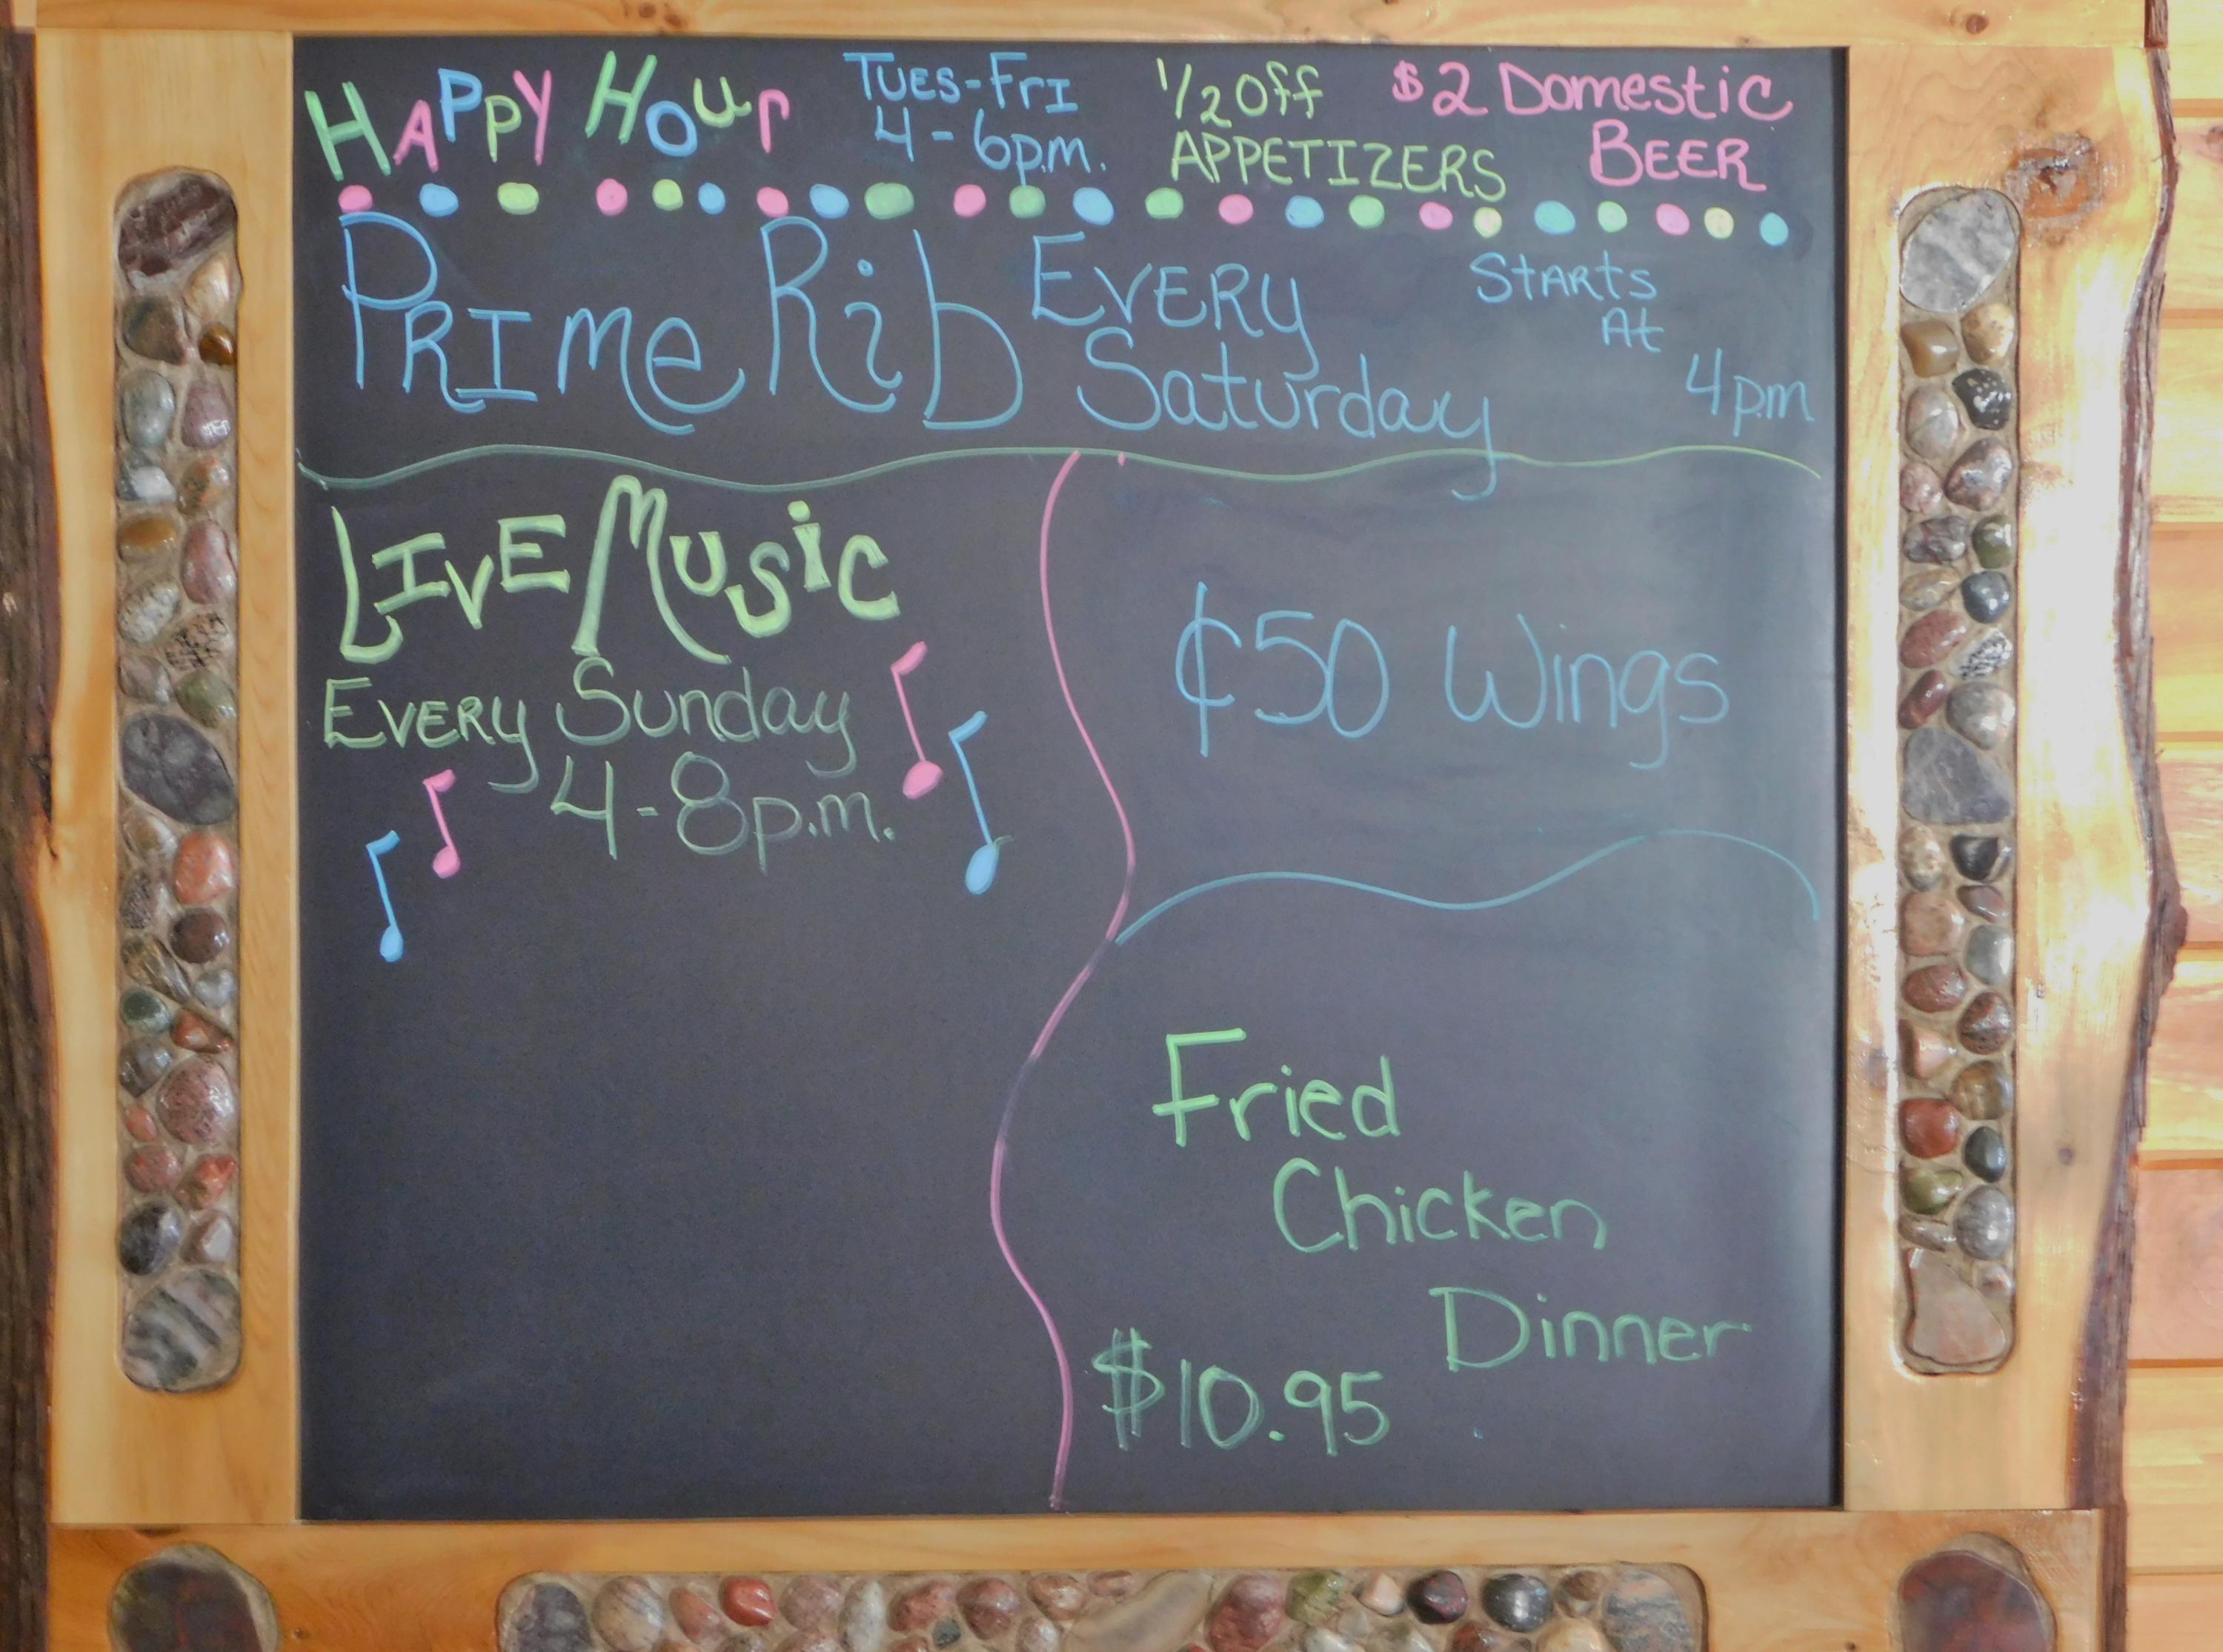 HAPPY HOUR
TUES-FRI
4-6p.m.
1/2 Off
APPETIZERS
$2 Domestic
BEER
PRIME Rib EVERY
Saturday
STARTS
At
4pm
LIVE MUSIC
EVERY Sunday
4-8p.m.
¢50 Wings
Fried
Chicken
Dinner
$10.95